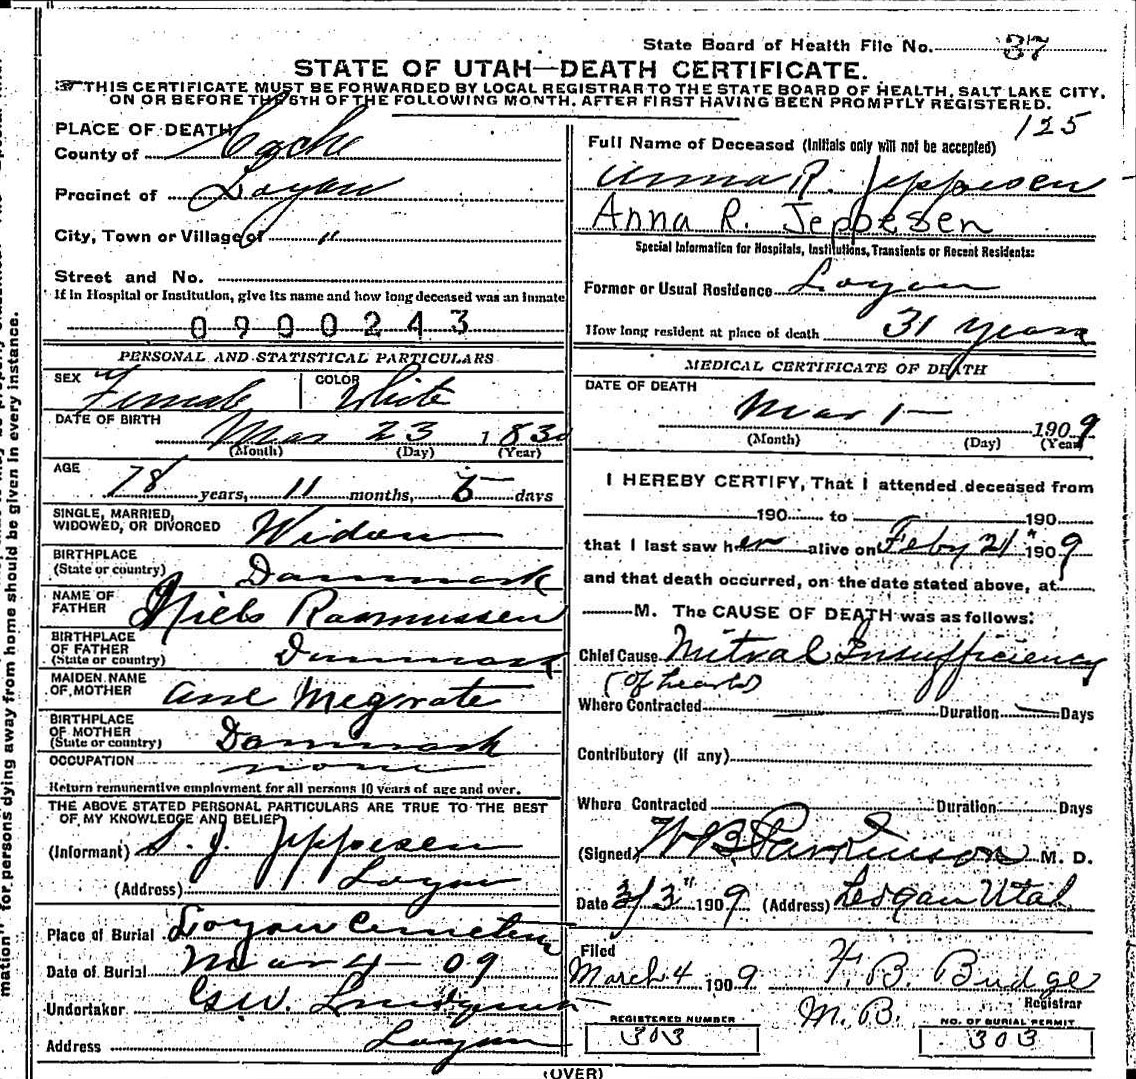 State Board of Health File No. 37
STATE OF UTAH—DEATH CERTIFICATE.
THIS CERTIFICATE MUST BE FORWARDED BY LOCAL REGISTRAR TO THE STATE BOARD OF HEALTH, SALT LAKE CITY,
ON OR BEFORE THE 5TH OF THE FOLLOWING MONTH, AFTER FIRST HAVING BEEN PROMPTLY REGISTERED.
125
PLACE OF DEATH
County of Cache
Precinct of Logan
City, Town or Village of "
Street and No.
If in Hospital or Institution, give its name and how long deceased was an inmate
0900243
PERSONAL AND STATISTICAL PARTICULARS
SEX Female COLOR White
DATE OF BIRTH Mar 23 1830
(Month) (Day) (Year)
AGE 78 years, 11 months, days
SINGLE, MARRIED, WIDOWED, OR DIVORCED Widow
BIRTHPLACE (State or country) Danmark
NAME OF FATHER Niels Rasmussen
BIRTHPLACE OF FATHER (State or country) Danmark
MAIDEN NAME OF MOTHER Ane
BIRTHPLACE OF MOTHER (State or country) Danmark
OCCUPATION none
Return remunerative employment for all persons 10 years of age and over.
THE ABOVE STATED PERSONAL PARTICULARS ARE TRUE TO THE BEST
OF MY KNOWLEDGE AND BELIEF
(Informant) S. J. Jeppesen
(Address) Logan
Place of Burial Logan Cemetery
Date of Burial Mar 4 - 09
Undertaker
Address Logan
Full Name of Deceased (Initials only will not be accepted)
Anna R. Jeppesen
Anna R. Jeppesen
Special Information for Hospitals, Institutions, Transients or Recent Residents:
Former or Usual Residence Logan
How long resident at place of death 31 years
MEDICAL CERTIFICATE OF DEATH
DATE OF DEATH
Mar 1 - 1909
(Month) (Day) (Year)
I HEREBY CERTIFY, That I attended deceased from
190 to 190
that I last saw her alive on Feby 21" 1909
and that death occurred, on the date stated above, at
M. The CAUSE OF DEATH was as follows:
Chief Cause Mitral Insufficiency
(of heart)
Where Contracted Duration Days
Contributory (if any)
Where Contracted Duration Days
(Signed) W B Parkinson M. D.
Date 3/3" 1909 (Address) Logan Utah
Filed
March 4 1909 F. B. Budge
Registrar
REGISTERED NUMBER
303
NO. OF BURIAL PERMIT
303
(OVER)
mation" for persons dying away from home should be given in every instance.